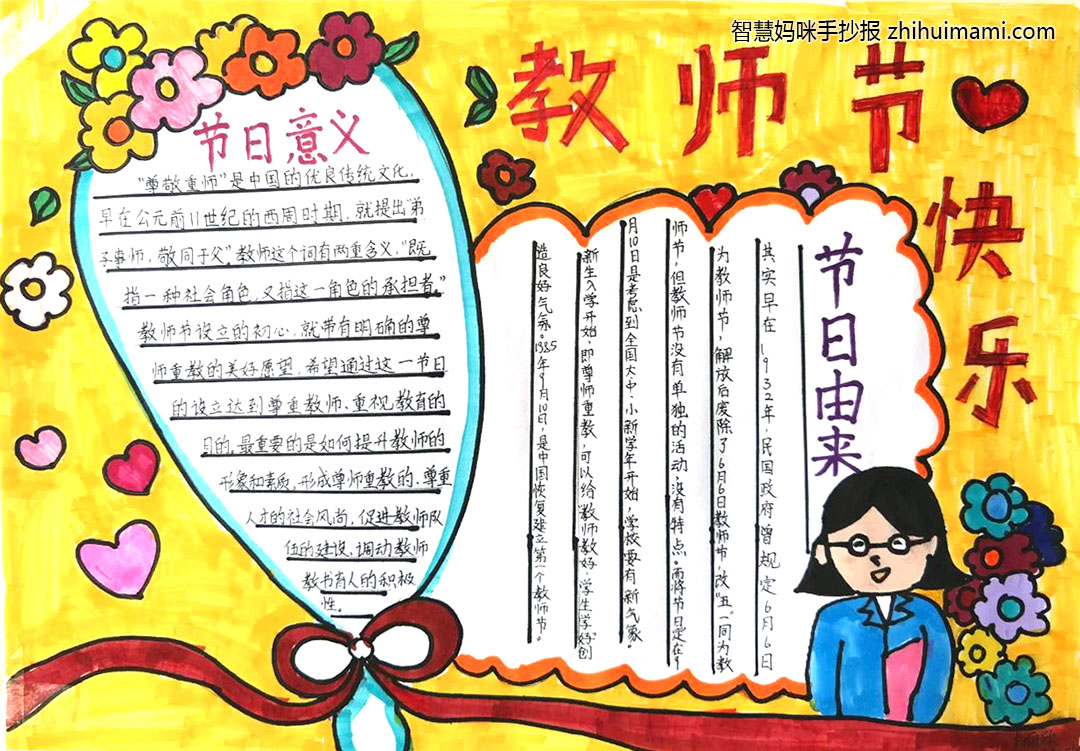 智慧妈咪手抄报 zhihuimami.com
教师节
快乐
节日意义
“尊敬重师”是中国的优良传统文化，
早在公元前11世纪的西周时期，就提出“弟
子事师，敬同于父”教师这个词有两重含义，“既
指一种社会角色，又指这一角色的承担者。”
教师节设立的初心，就带有明确的尊
师重教的美好愿望，希望通过这一节日
的设立达到尊重教师、重视教育的
目的。最重要的是如何提升教师的
形象和素质，形成尊师重教的、尊重
人才的社会风尚，促进教师队
伍的建设、调动教师
教书育人的积极
性。
节日由来
其实早在1932年，民国政府曾规定6月6日
为教师节，解放后废除了6月6日教师节，改“五。一同为教
师节，但教师节没有单独的活动，没有特点。而将节日定在9
月10日是考虑到全国大中、小新学年开始，学校要有新气象。
新生入学开始，即尊师重教，可以给“教师教好，学生学好”创
造良好气氛。1985年9月10日，是中国恢复建立第一个教师节。